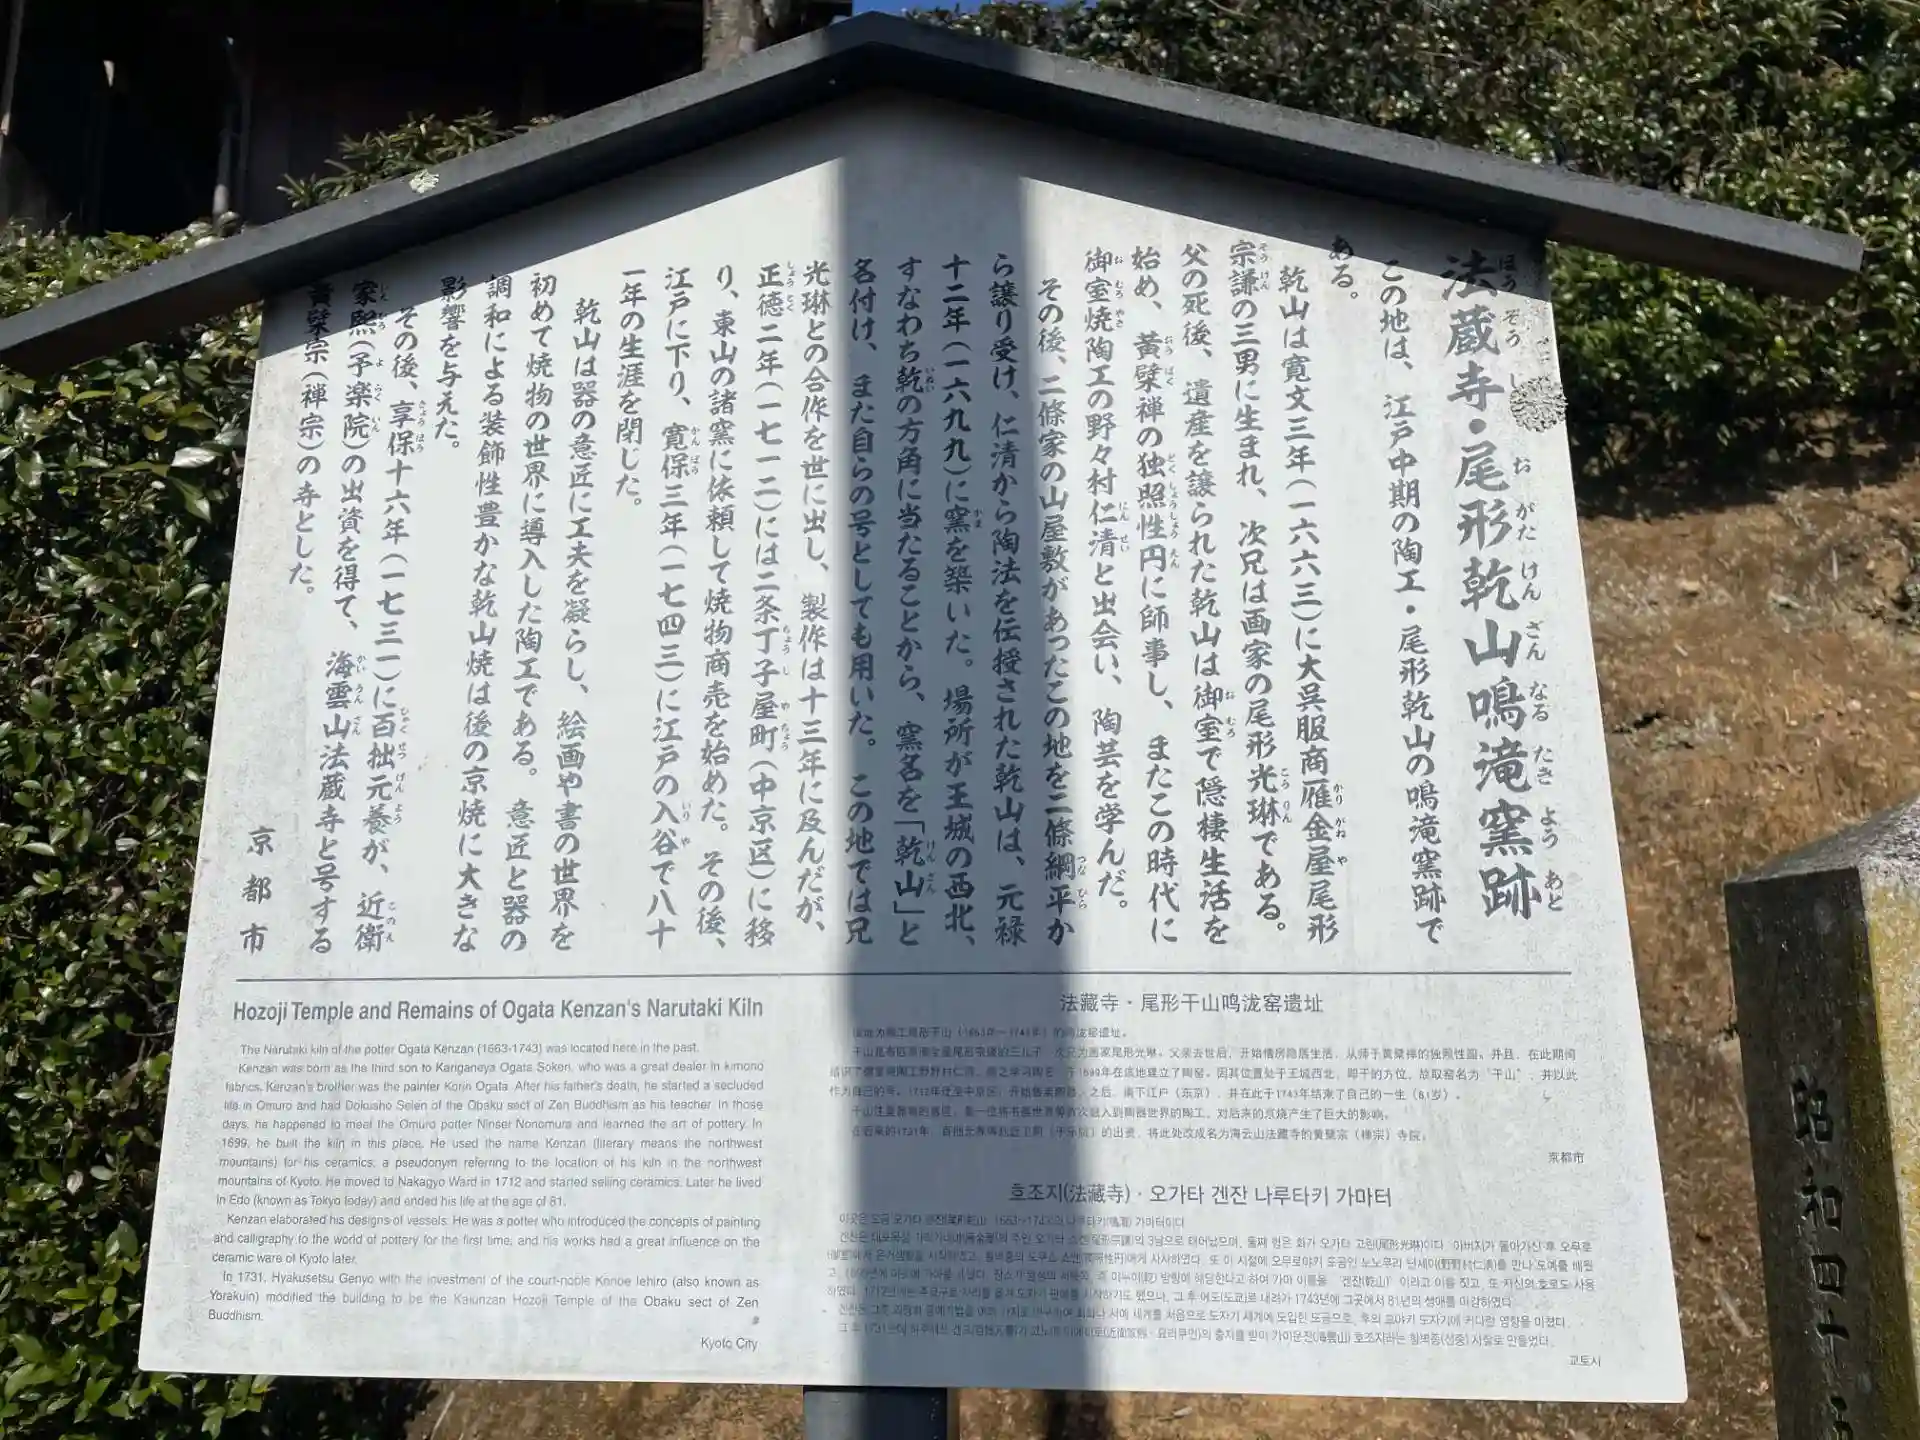 法蔵寺・尾形乾山鳴滝窯跡
この地は、江戸中期の陶工・尾形乾山の鳴滝窯跡で
ある。
乾山は寛文三年(一六六三)に大呉服商雁金屋尾形
宗謙の三男に生まれ、次兄は画家の尾形光琳である。
父の死後、遺産を譲られた乾山は御室で隠棲生活を
始め、黄檗禅の独照性円に師事し、またこの時代に
御室焼陶工の野々村仁清と出会い、陶芸を学んだ。
その後、二條家の山屋敷があったこの地を二條綱平か
ら譲り受け、仁清から陶法を伝授された乾山は、元禄
十二年(一六九九)に窯を築いた。場所が王城の西北、
すなわち乾の方角に当たることから、窯名を「乾山」と
名付け、また自らの号としても用いた。この地では兄
光琳との合作を世に出し、製作は十三年に及んだが、
正徳二年(一七一二)には二条丁子屋町(中京区)に移
り、東山の諸窯に依頼して焼物商売を始めた。その後、
江戸に下り、寛保三年(一七四三)に江戸の入谷で八十
一年の生涯を閉じた。
乾山は器の意匠に工夫を凝らし、絵画や書の世界を
初めて焼物の世界に導入した陶工である。意匠と器の
調和による装飾性豊かな乾山焼は後の京焼に大きな
影響を与えた。
その後、享保十六年(一七三一)に百拙元養が、近衛
家熙(予楽院)の出資を得て、海雲山法蔵寺と号する
黄檗宗(禅宗)の寺とした。
京都市
Hozoji Temple and Remains of Ogata Kenzan's Narutaki Kiln
The Narutaki kiln of the potter Ogata Kenzan (1663-1743) was located here in the past.
Kenzan was born as the third son to Kariganeya Ogata Soken, who was a great dealer in kimono
fabrics. Kenzan's brother was the painter Korin Ogata. After his father's death, he started a secluded
life in Omuro and had Dokusho Seien of the Obaku sect of Zen Buddhism as his teacher. In those
days, he happened to meet the Omuro potter Ninsei Nonomura and learned the art of pottery. In
1699, he built the kiln in this place. He used the name Kenzan (literary means the northwest
mountains) for his ceramics, a pseudonym referring to the location of his kiln in the northwest
mountains of Kyoto. He moved to Nakagyo Ward in 1712 and started selling ceramics. Later he lived
in Edo (known as Tokyo today) and ended his life at the age of 81.
Kenzan elaborated his designs of vessels. He was a potter who introduced the concepts of painting
and calligraphy to the world of pottery for the first time, and his works had a great influence on the
ceramic ware of Kyoto later.
In 1731, Hyakusetsu Genyo with the investment of the court-noble Konoe Iehiro (also known as
Yorakuin) modified the building to be the Kaiunzan Hozoji Temple of the Obaku sect of Zen
Buddhism.
Kyoto City
法藏寺・尾形干山鸣泷窑遗址
父亲去世后，开始情房隐居生活，从师于黄檗禅的独照性圆。并且，在此期间
于1699年在这地建立了陶窑。因其位置处于王城西北，即干的方位，故取窑名为“干山”，并以此
之后，南下江户（东京），并在此于1743年结束了自己的一生（81岁）。
融入到陶器世界的陶工，对后来的京烧产生了巨大的影响。
的出资，将此处改成名为海云山法藏寺的黄檗宗（禅宗）寺院。
京都市
호조지(法蔵寺)・오가타 겐잔 나루타키 가마터
교토시
昭和四十五